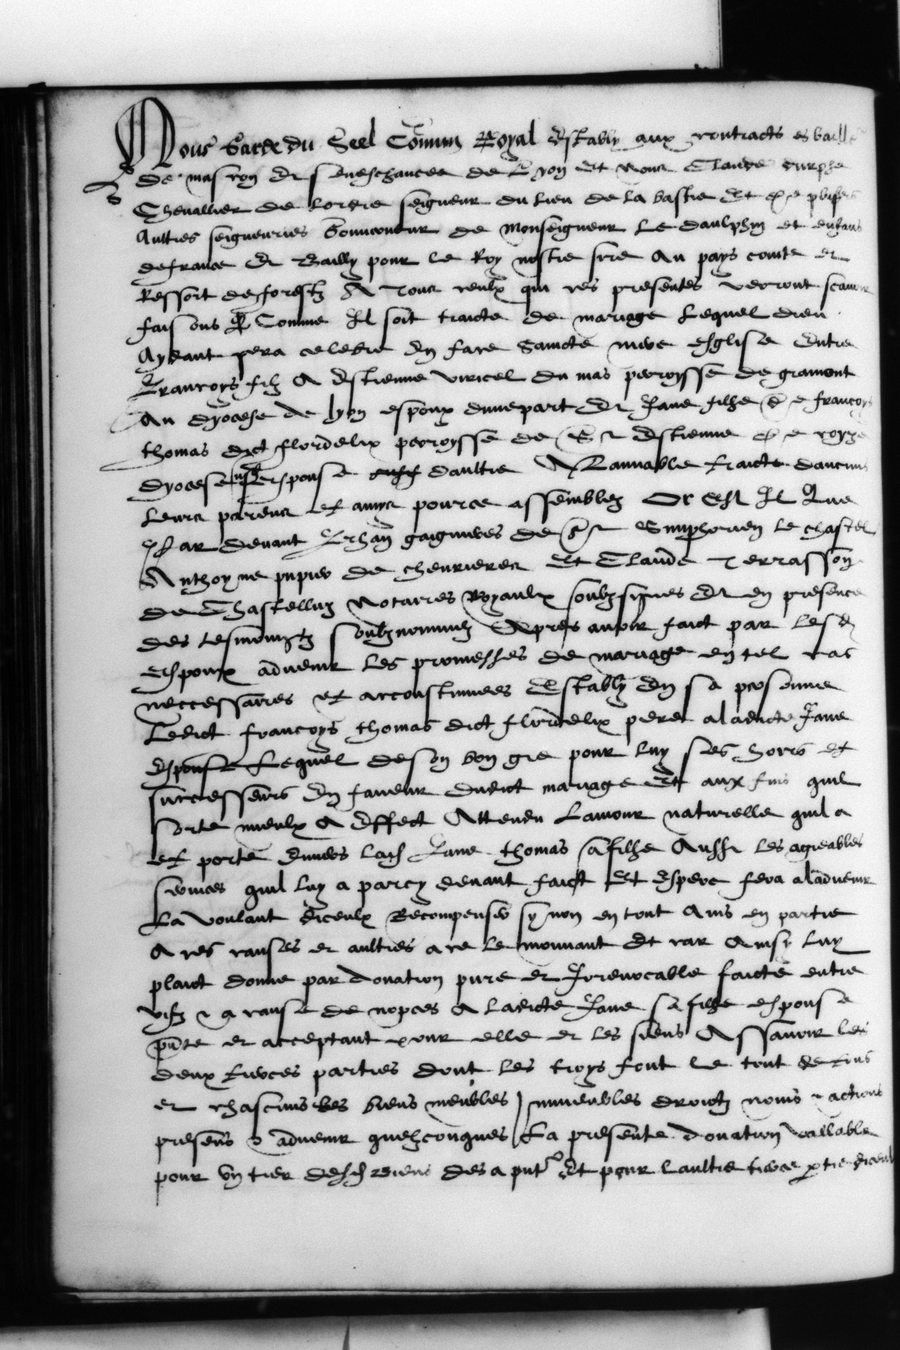 Nous Garde du Seel Commun Royal Estably aux contractz es bailli
de mascon et seneschaucee de Lyon Et nous Claude d'urphe
Chevallier de lordre seigneur du lieu de la bastie Et
Aultres seigneuries Gouverneur de Monseigneur Le daulphin et enfans
de france Et Bailly pour le Roy nostre sire Au pays conte et
Ressort de forestz A Tous ceulx qui ces presentes verront scavoir
faisons Comme Il soit traicte de mariage Lequel dieu
Aydant sera celebre En face Saincte mere Esglise Entre
Francoys filz A Estienne viricel du mas parroysse de gramont
Au dyocese de lyon espoux dunepart Et Jane filhe a francoys
thomas dict flordelix parroysse de St Estienne
dyocese espouse daultre Affannable traicte daucuns
Leurs parens et amys pource assemblez Or Est Il Que
Par devant Jehan gaignieres de St Simphorien le chastel
Anthoyne pupier de chevrieres Et Claude Terrasson
de Chastelluz Notaires Royaulx soubzsignes Et en presence
des tesmoingtz soubznommez Apres avoir faict par lesd
espoux advenir les promesses de mariage en tel cas
neccessaires et accoustumees Estably En sa personne
Ledict francoys thomas dict flordelix pere a ladicte Jane
Espouse Lequel de son bon gre pour luy ses hoirs et
successeurs En faveur dudict mariage Et aux fins quil
sorte mieulx A Effect Attendu Lamour naturelle quil a
et porte envers lad Jane thomas sa filhe Aussi les agreables
services quil luy a par cy devant faict Et Espere fera aladvenir
La voulant diceulx Recompenser synon en tout Ains en partie
A ces causes et aultres a ce le mouvant Et car Ainsi luy
plaict donne par donation pure et Irrevocable faicte entre
vifz a cause de nopces A Ladicte Jane sa filhe espouse
pnte et acceptant pour elle et les siens Assavoir les
deux tierces parties dont les troys font le tout de tous
et chascuns ses biens meubles immeubles droictz noms actions
presens & advenir quelzconques La presente donation vallable
pour ung tier desd biens des a pnt Et pour laultre tierce partie diceulx